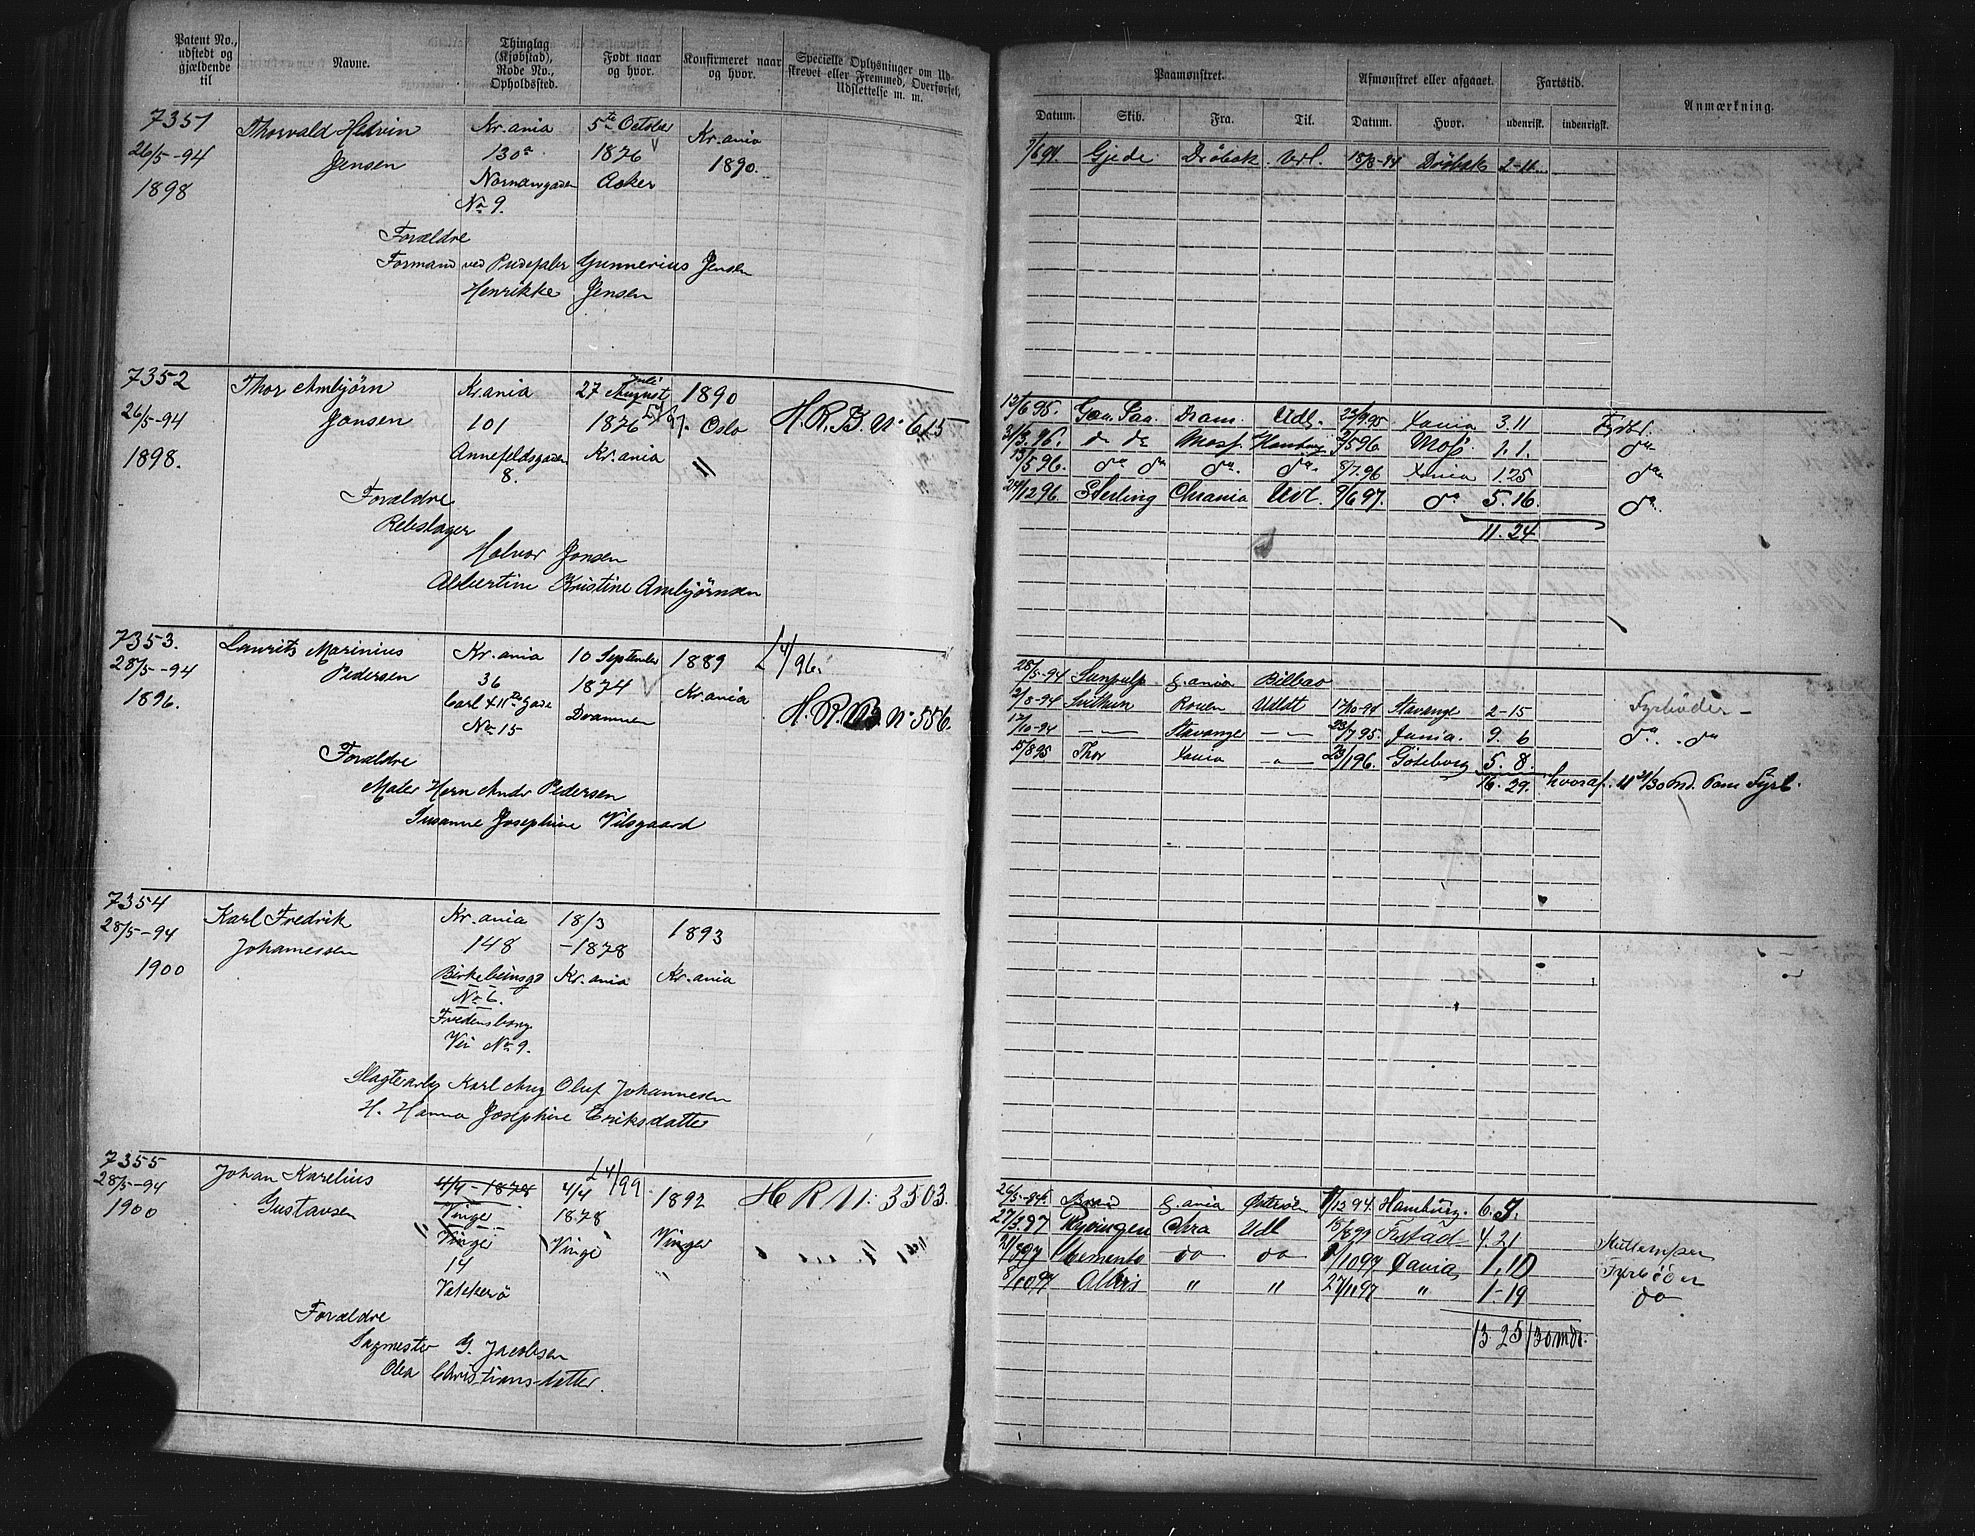 Patent No., udstedt og gjældende til
Navne.
Thinglag (Kjøbstad), Rode No., Opholdssted.
Født naar og hvor.
Konfirmeret naar og hvor.
Specielle Oplysninger om Udskrevet eller Fremmed, Overførsel, Udslettelse m. m.
7351
26/5-94
1898
Thorvald Hedvin
Jensen
Kr.ania
130a
No 9.
5te October
1876
Aker
Kr.ania
1890.
Forældre
Formand ved Gunnerius Jensen
Henrikke Jensen
7352
26/5-94
1898.
Thor Ambjörn
Jonsen
Kr.ania
101
Annefeldsgaden
8.
Juli
27 August
1876
Kr.ania
1890
Oslo
"
H. R. B. No 615
Forældre
Rebslager
Halvor Jonsen
Albertine Kristine Ambjörnsen
7353.
28/5-94
1896.
Laurits Marinius
Pedersen
Kr.ania
36
Carl XIIte Gade
No 15
10 September
1874
Drammen
1889
Kr.ania
L 4/96.
H. R. No 556.
Forældre
Maler Herm Andr Pedersen
Susanne Josephine Vilsgaard
7354
28/5-94
1900
Karl Fredrik
Johannessen
Kr.ania
148
Birkebeinsgd
No 6.
Fredensborg
Vei No 9.
18/3
-1878
Kr.ania
1893
Kr.ania
Slagterarb Karl Aug Oluf Johannesen
H. Hanna Josephine Eriksdatter
7355
28/5-94
1900
Johan Karelius
Gustavsen
4/4-1878
Vinger
Vinger
14
Vækkerö
L 4/99.
4/4
1878
Vinge
1892
Vinger
H R No: 3503.
Forældre
Sagmester G. Jacobsen
Olea Christians-datter.
Paamønstret.
Afmønstret eller afgaaet.
Fartstid.
Anmærkning.
Datum.
Skib.
Fra.
Til.
Datum.
Hvor.
udenrigsk.
indenrigsk.
7/6 94. Gjede Dröbak Udl. 18/8-94 Dröbak 2-11
12/6 95. Dram. Udl. Xania 3.11
31/3.96. Moss. Hamburg 2/5 96 Moss 1.1.
13/5 96. do do do. do. 8/7.96 Xania 1.25 do
24/12 96 Sterling Chrania Udl. 9/6 97. do 5.16. do.
11.24
28/5-94 Sunpulp X.ania Bilbao
2/8-94 Svithun Rouen Udldt 17/10-94 Stavange 2-15 Fyrböder
17/10-94 — — Stavanger — — 23/7 95. Xania. 9. 6 do. . do
15/8 95 Thor Xania — 23/1 96. Göteborg 5. 8.
16. 29. hvoraf. 11 21/30 Md. som Fyrb.
26/5-94. Brand X.ania 1/12 94. Hamburg. 6. 5.
27/3.97 Ryvingen Chra Udl 18/8 97 Frstad 4. 21
21/8 97 Clements do do 1/10 97 Xania 1. 10 Kullemper
8/10 97 Albis " " 27/11 97 " 1-19 Fyrböder
do
13 25/30 mdr.